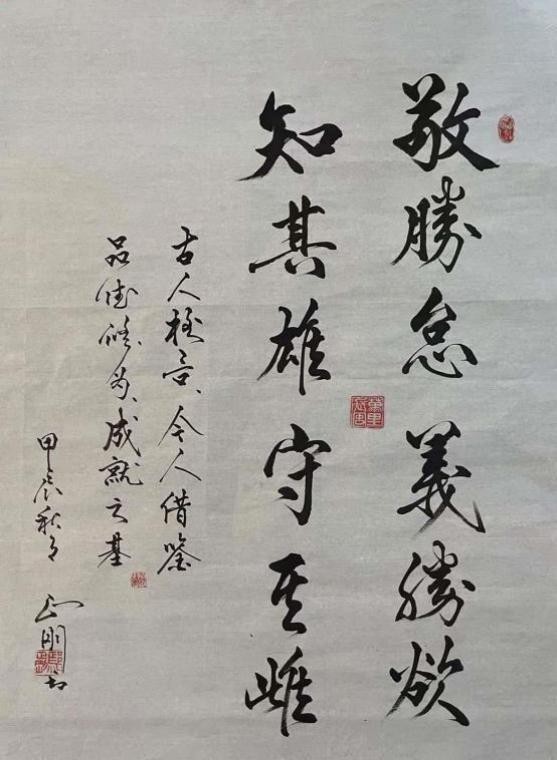 敬勝怠義勝欲
知其雄守其雌
古人格言、令人借鑒
品德修為、成就之基
甲辰秋月
正明书